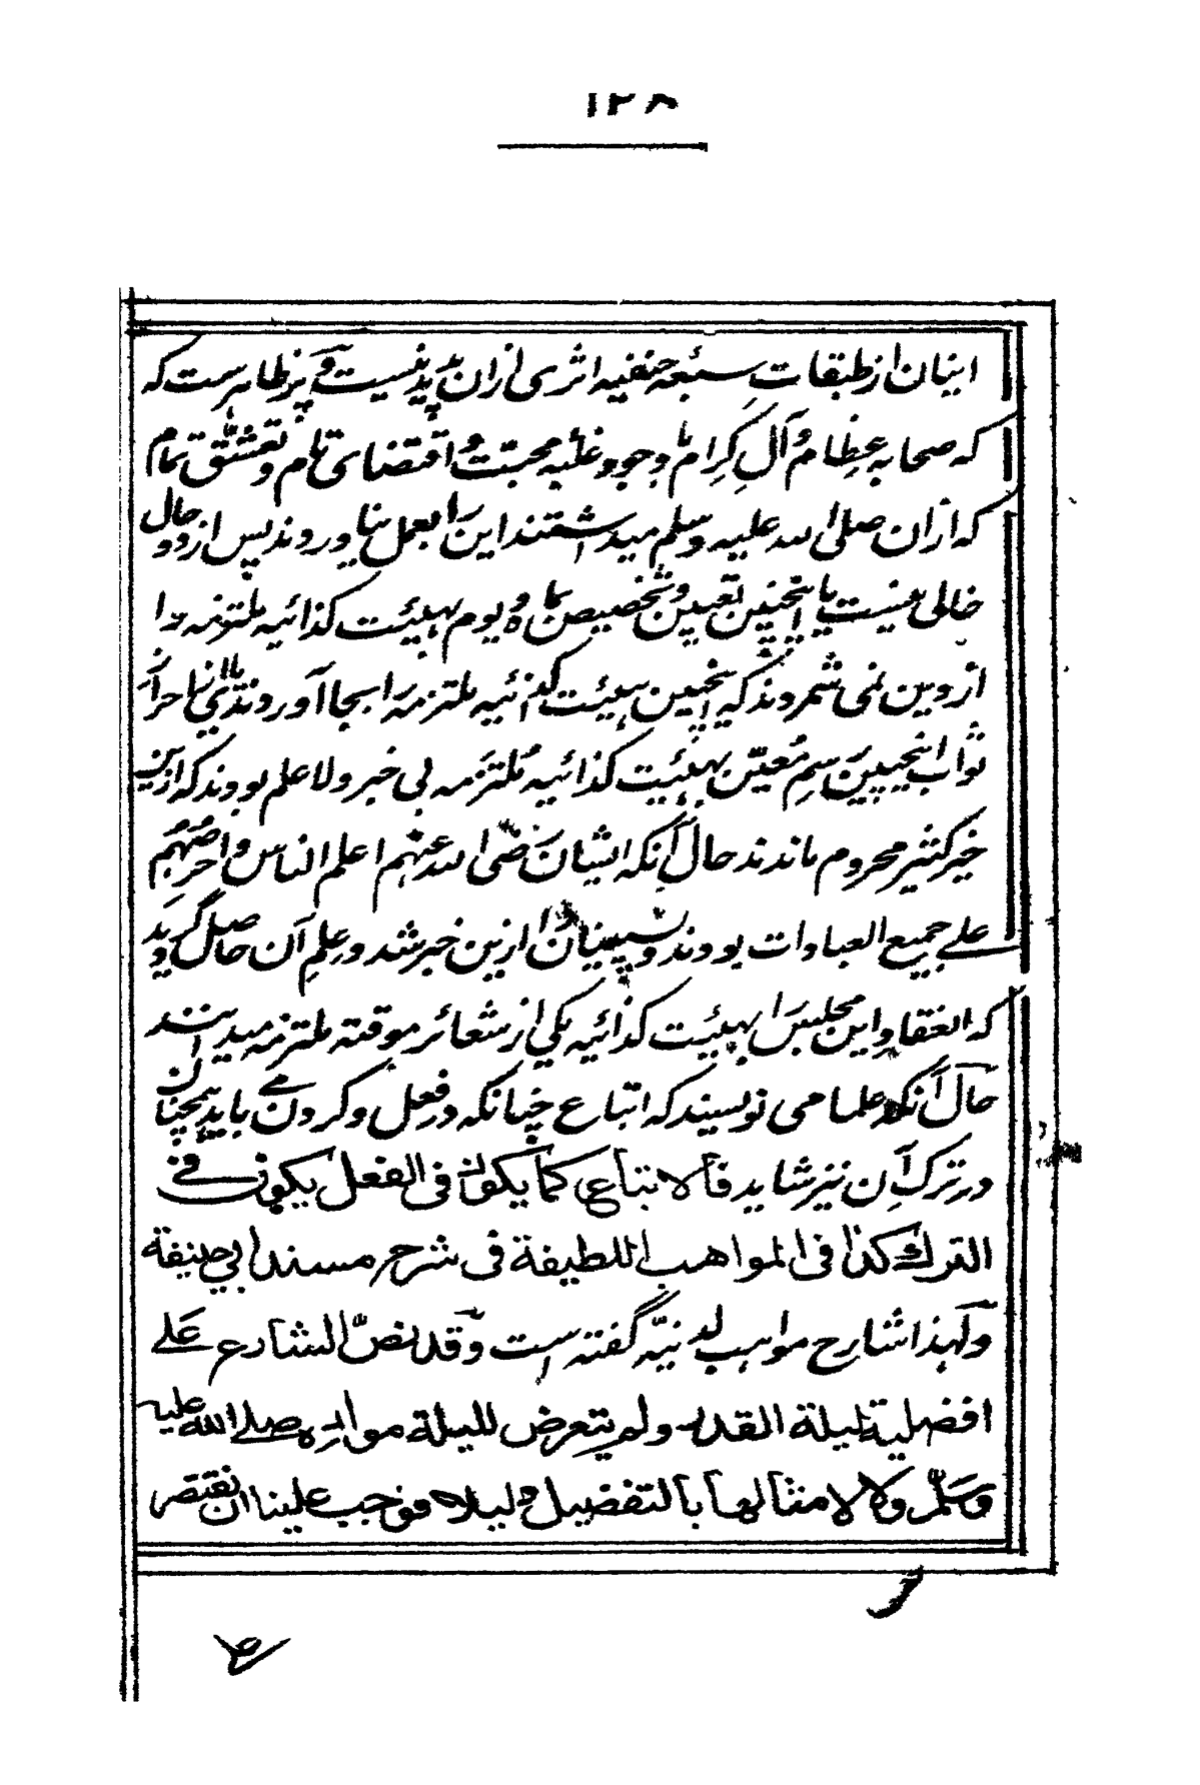 ۱۲۸
اینان از طبقات سبعه حنفیه اثری ازان پدید نیست و پر ظاهرست که
که صحابه عظام و آل کرام با وجود غلبه محبت و اقتضای تام و تعشق تمام
که ازان صلی الله علیه وسلم میداشتند این را بعمل نیاوردند پس از دو حال
خالی نیست یا اینچنین تعیین و تخصیص ماه و یوم بهیئت کذائیه ملتزمه را
از دین نمی شمردند که اینچنین بهیئت کذائیه ملتزمه را بجا آوردندی یا احراز
ثواب اینچنین رسم معین بهیئت کذائیه ملتزمه بی خبر ولا علم بودند که ازین
خیر کثیر محروم ماندند حال آنکه ایشان رضی الله عنهم اعلم الناس و احرصهم
علے جمیع العبادات بودند و پسینیان را ازین خبر شد و علم آن حاصل گردید
که انعقاد این مجلس بهیئت کذائیه یکی از شعائر موقته ملتزمه میدانند
حال آنکه علما می نویسند که اتباع چنانکه در فعل و کردن مے باید همچنان
در ترک آن نیز شاید فالاتباع کما یکون فی الفعل یکون فے
الترك كذا فی المواهب اللطیفة فی شرح مسند ابی حنیفة
و لهذا شارح مواهب لدنیّه گفته است و قد نصّ الشارع علے
افضلیة لیلة القدر ولم یتعرض للیلة مولده صلے الله علیه
وسلّم ولا لامثالها بالتفضیل فوجب علینا ان نقتصر